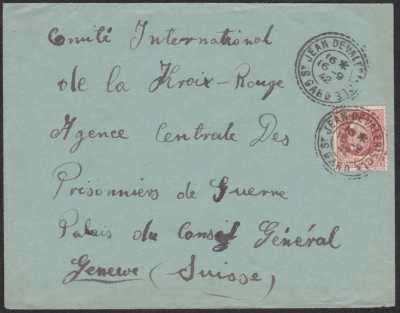 Comité International
de la Kroix-Rouge
Agence Centrale Des
Prisonniers de Guerre
Palais du Conseil Général
Genewe (Suisse)
ST JEAN DE VALERI
16 *
16 -9
42
GARD
ST JEAN DE VALERI
GARD